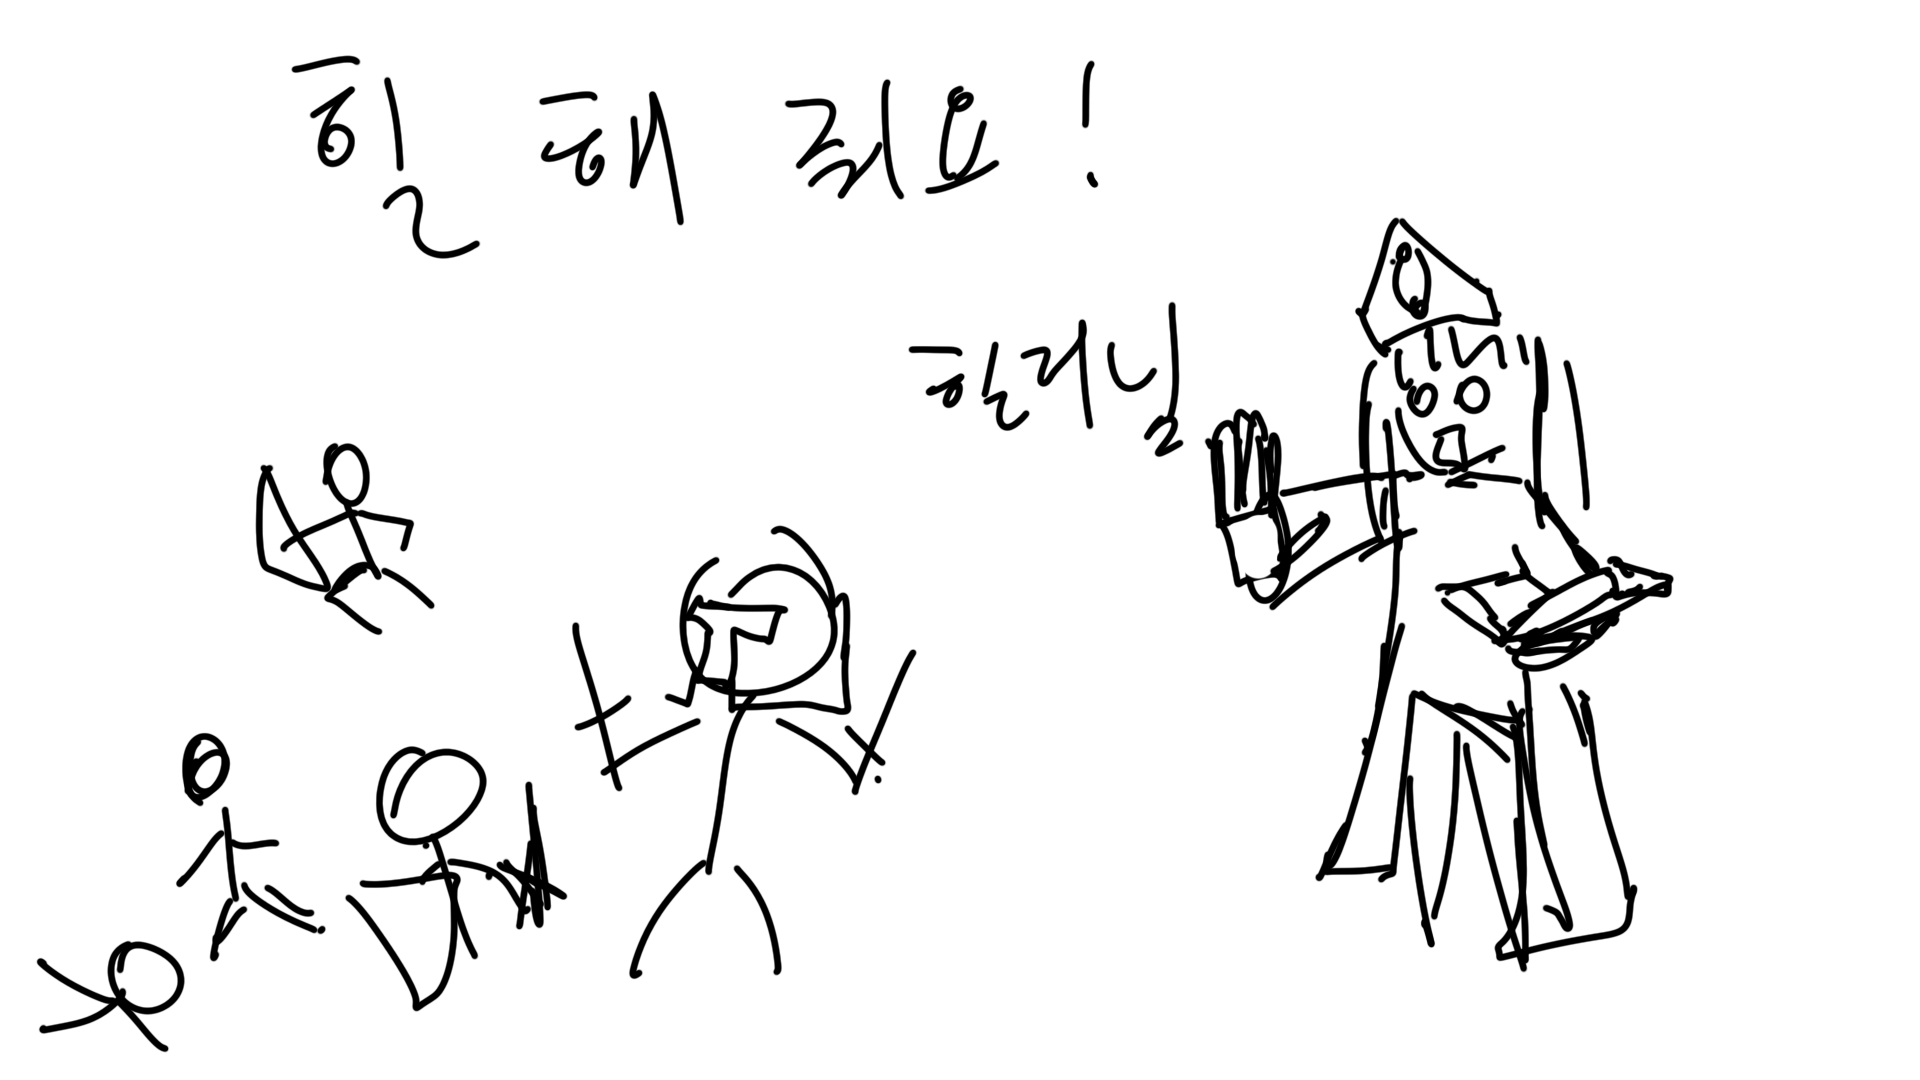 힐 해 줘요!
힐러님